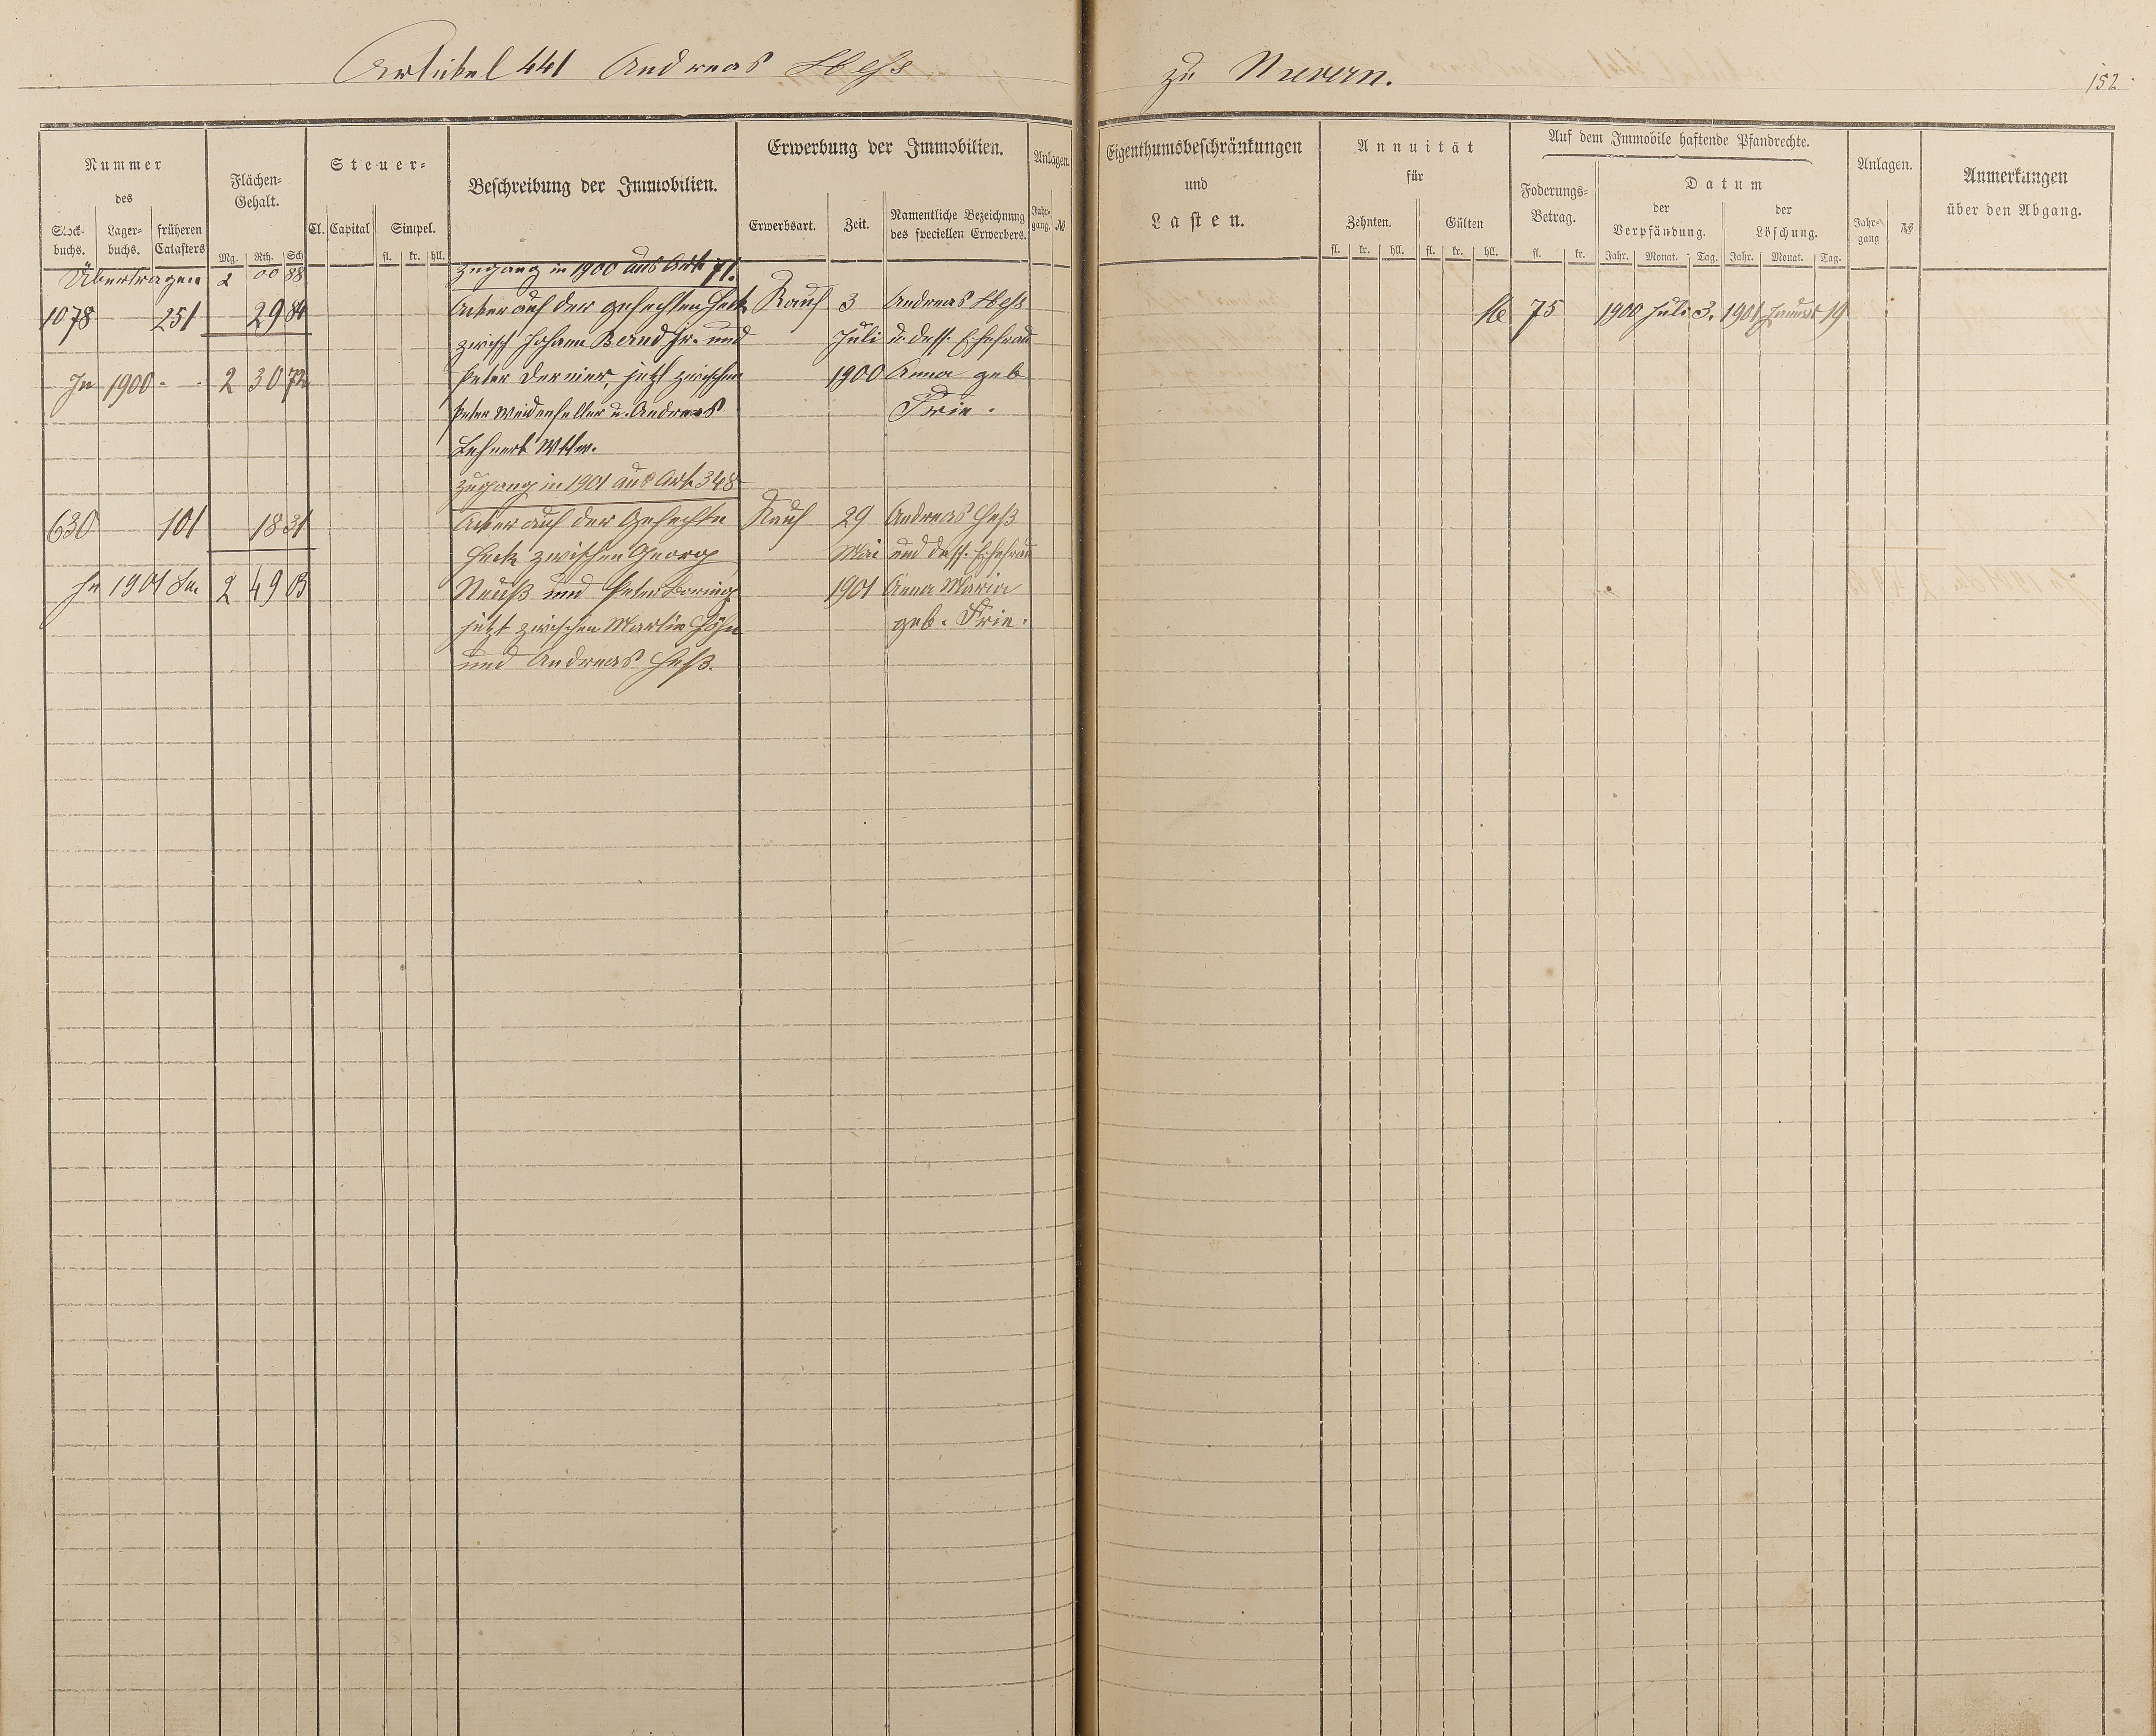 Artikel 441 Andreas Hess
zu Nievern.
152
Nummer
des
Stock-buchs.
Lager-buchs.
früheren Catasters
Flächen-Gehalt.
Mg. Rth. Sch
Steuer-
Cl. Capital Simpel.
fl. kr. hll.
Beschreibung der Immobilien.
Erwerbung der Immobilien.
Erwerbsart. Zeit. Namentliche Bezeichnung des speciellen Erwerbers.
Anlagen.
Jahr-gang. №
Eigenthumsbeschränkungen
und
Lasten.
Annuität
für
Zehnten. Gülten
fl. kr. hll. fl. kr. hll.
Auf dem Immobile haftende Pfandrechte.
Foderungs-Betrag.
fl. kr.
Datum
der Verpfändung.
der Löschung.
Jahr. Monat. Tag. Jahr. Monat. Tag.
Anlagen.
Jahr-gang №
Anmerkungen
über den Abgang.
Übertragen 2 00 88 Zugang in 1900 aus Art. 71.
1078 251 29 84 Acker auf der Gefechten Heck Kauf 3 Andreas Hess M 75 1900 Juli 3. 1901 Januar 19
zwisch Johann Bernd Jr. und Juli u. dess. Ehefrau
In 1900 2 30 72 Peter Dernier, jetzt zwischen 1900 Anna geb
Peter Weidenfeller u. Andreas Frie.
Lehnert Wttw.
Zugang in 1901 aus Art. 348
630 101 18 31 Acker auf der Gefechte Kauf 29 Andreas Heß
Heck zwischen Georg Mai und dess. Ehefrau
In 1901 Sa. 2 49 03 Neuß und Peter 1901 Anna Maria
jetzt zwischen Martin Höhn geb. Frie.
und Andreas Heß.